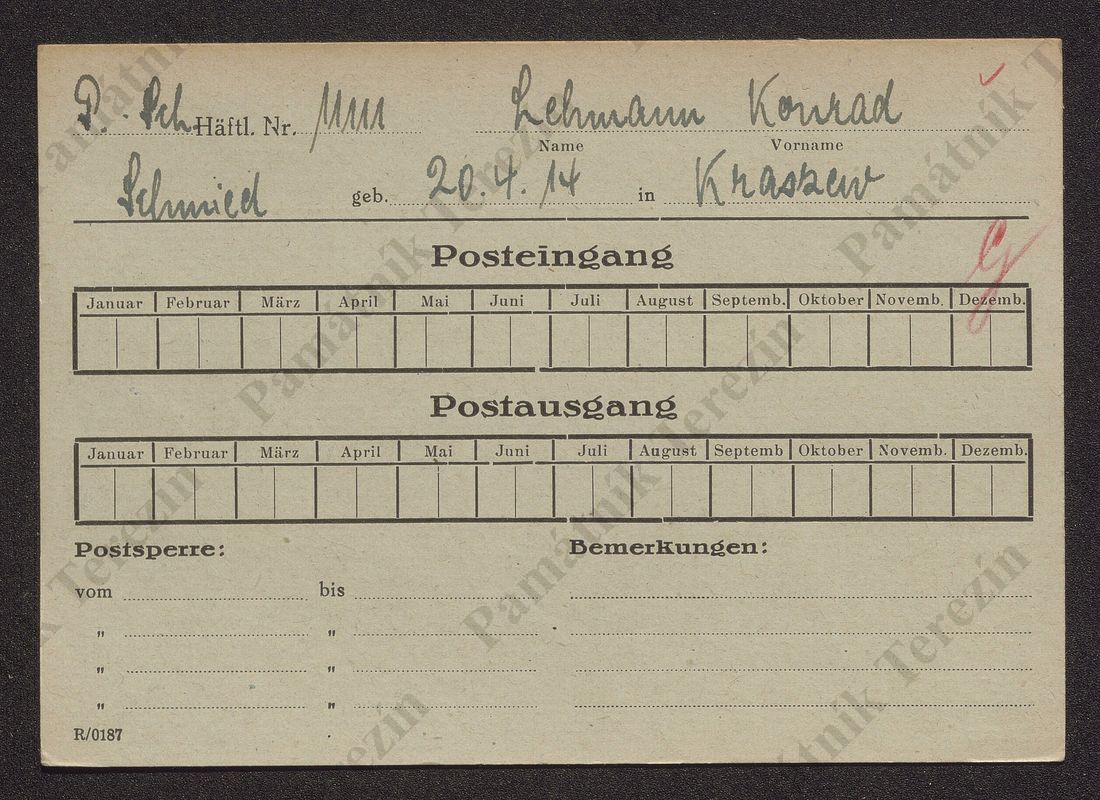 P. Sch. Häftl. Nr. 11111 Lehmann Konrad
Name Vorname
Schmied geb. 20.4.14 in Kraszew
Posteingang
Januar Februar März April Mai Juni Juli August Septemb. Oktober Novemb. Dezemb.
Postausgang
Januar Februar März April Mai Juni Juli August Septemb Oktober Novemb. Dezemb.
Postsperre: Bemerkungen:
vom bis
" "
" "
" "
R/0187
Památník Terezín